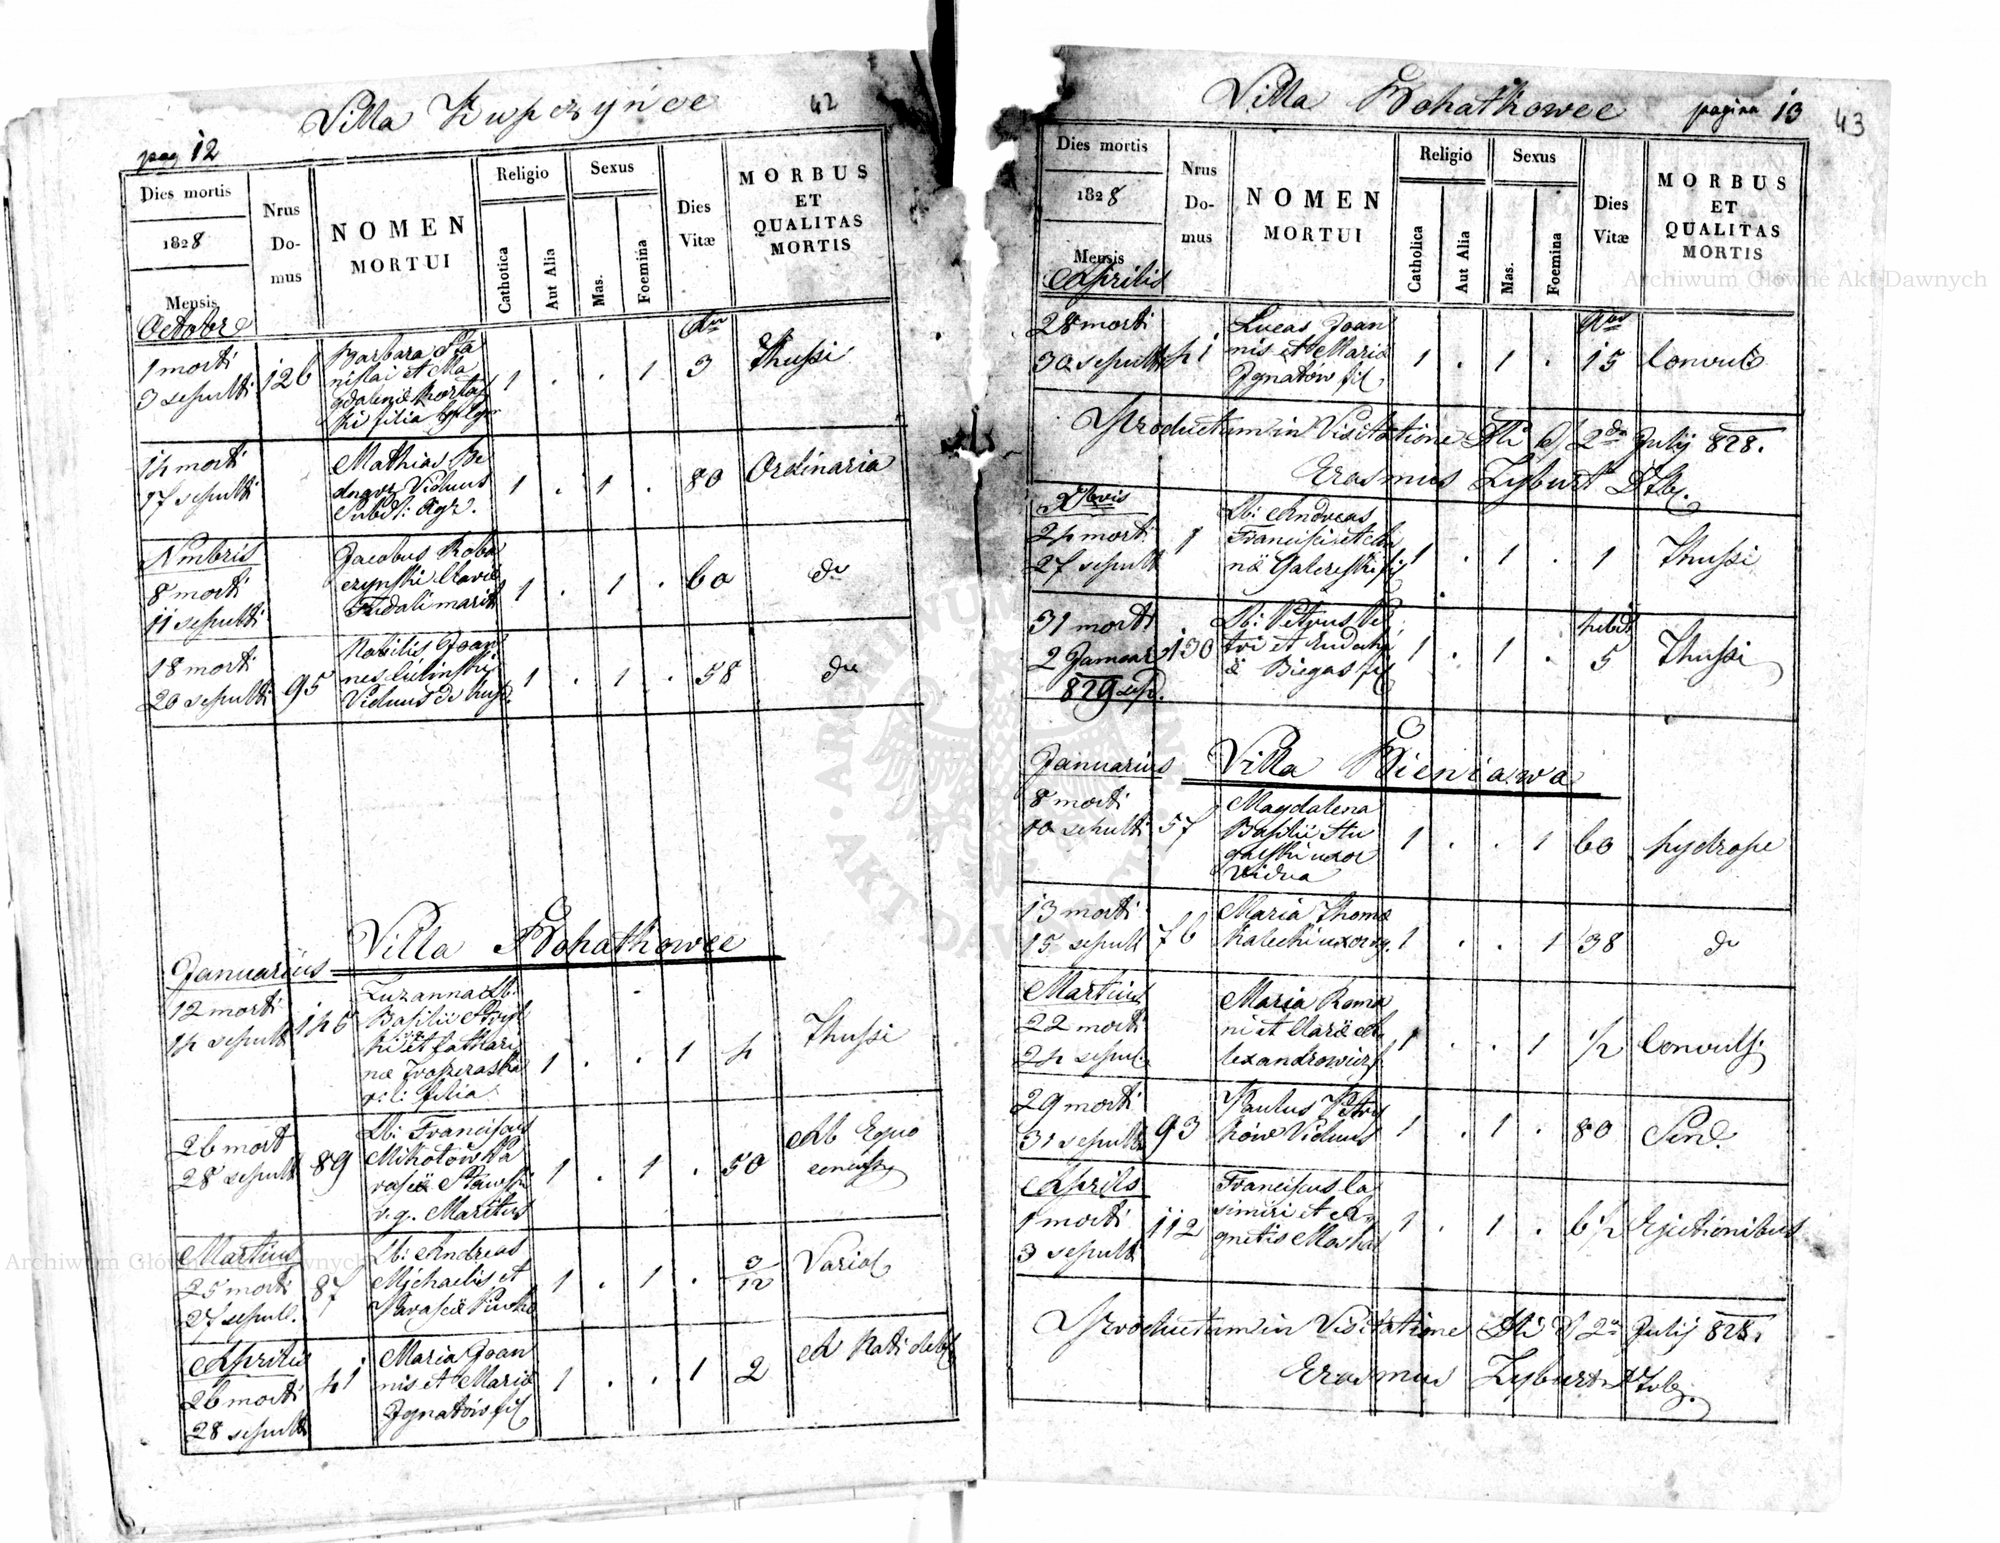 Villa Kupczynce
42
pag 12
Dies mortis
1828
Mensis
Nrus
Do-
mus
NOMEN
MORTUI
Religio
Catholica
Aut Alia
Sexus
Mas.
Foemina
Dies
Vitæ
MORBUS
ET
QUALITAS
MORTIS
Octobre
1 morti
3 sepulti
126
Barbara Sta
nislai et Ma
gdalenæ
filia
1 . . 1 3
Thussi
14 morti
17 sepulti
Mathias Be
dnarz Viduus
Subdi: Agr.
1 . 1 . 80
Ordinaria
Nmbris
8 morti
11 sepulti
Jacobus Roba
czynski
1 . 1 . 60
do
18 morti
20 sepulti
95
Nobilis Joan
nes Lulinski
Viduus de
1 . 1 . 58
do
Villa Bohatkowce
Januarius
12 morti
14 sepulti
145
Zuzanna Lb:
Basilii
ki et Cathari
næ
filia
1 . . 1 4
Thussi
26 mort
28 sepulti
89
Lb: Franciscus
Mikotów Pa
rasciæ
r. g. Maritus
1 . 1 . 50
Ab Equo
Martius
25 morti
27 sepult.
87
Lb: Andreas
Michaelis et
Parasciæ
1 . 1 . 3/12
Variol
Aprilis
26 morti
28 sepulti
41
Maria Joan
nis et Mariæ
Ignatów fil
1 . . 1 2
Villa Bohatkowce
pagina 13
43
Dies mortis
1828
Mensis
Nrus
Do-
mus
NOMEN
MORTUI
Religio
Catholica
Aut Alia
Sexus
Mas.
Foemina
Dies
Vitæ
MORBUS
ET
QUALITAS
MORTIS
Aprilis
28 morti
30 sepulti
41
Lucas Joan
nis et Mariæ
Ignatów fil.
1 . 1 . 15
Convuls
Productum in Visitatione Dli d 2da Julij 828.
Erasmus Zyburt
Xbris
24 morti
27 sepult
1
Lb: Andreas
Francisci et An
næ
1 . 1 . 1
Thussi
31 morti
2 Januar
829 sep.
130
Lb: Petrus Pe
tri et Eudoki
æ Biegas fil
1 . 1 . 5
Thussi
Villa Bieniawa
Januarius
8 morti
10 sepulti
57
Magdalena
Basilii
uxor
Vidua
1 . . 1 60
hydrope
13 morti
15 sepult
76
Maria Thomæ
Kalecki uxor
1 . . 1 38
do
Martius
22 morti
24 sepul.
Maria Roma
ni et Claræ A
lexandrowicz f.
1 . . 1 1/2
Convuls.
29 morti
31 sepulti
93
Paulus Petry
ków Viduus
1 . 1 . 80
Sen.
Aprilis
1 morti
3 sepulti
112
Franciscus Ca
simiri et A
gnetis Moskal
1 . 1 . 6 1/2
Ejectionibus
Productum in Visitatione Dli d 2a Julij 828.
Erasmus Zyburt
Archiwum Główne Akt Dawnych
Archiwum Główne Akt Dawnych
ARCHIWUM GŁÓWNE AKT DAWNYCH